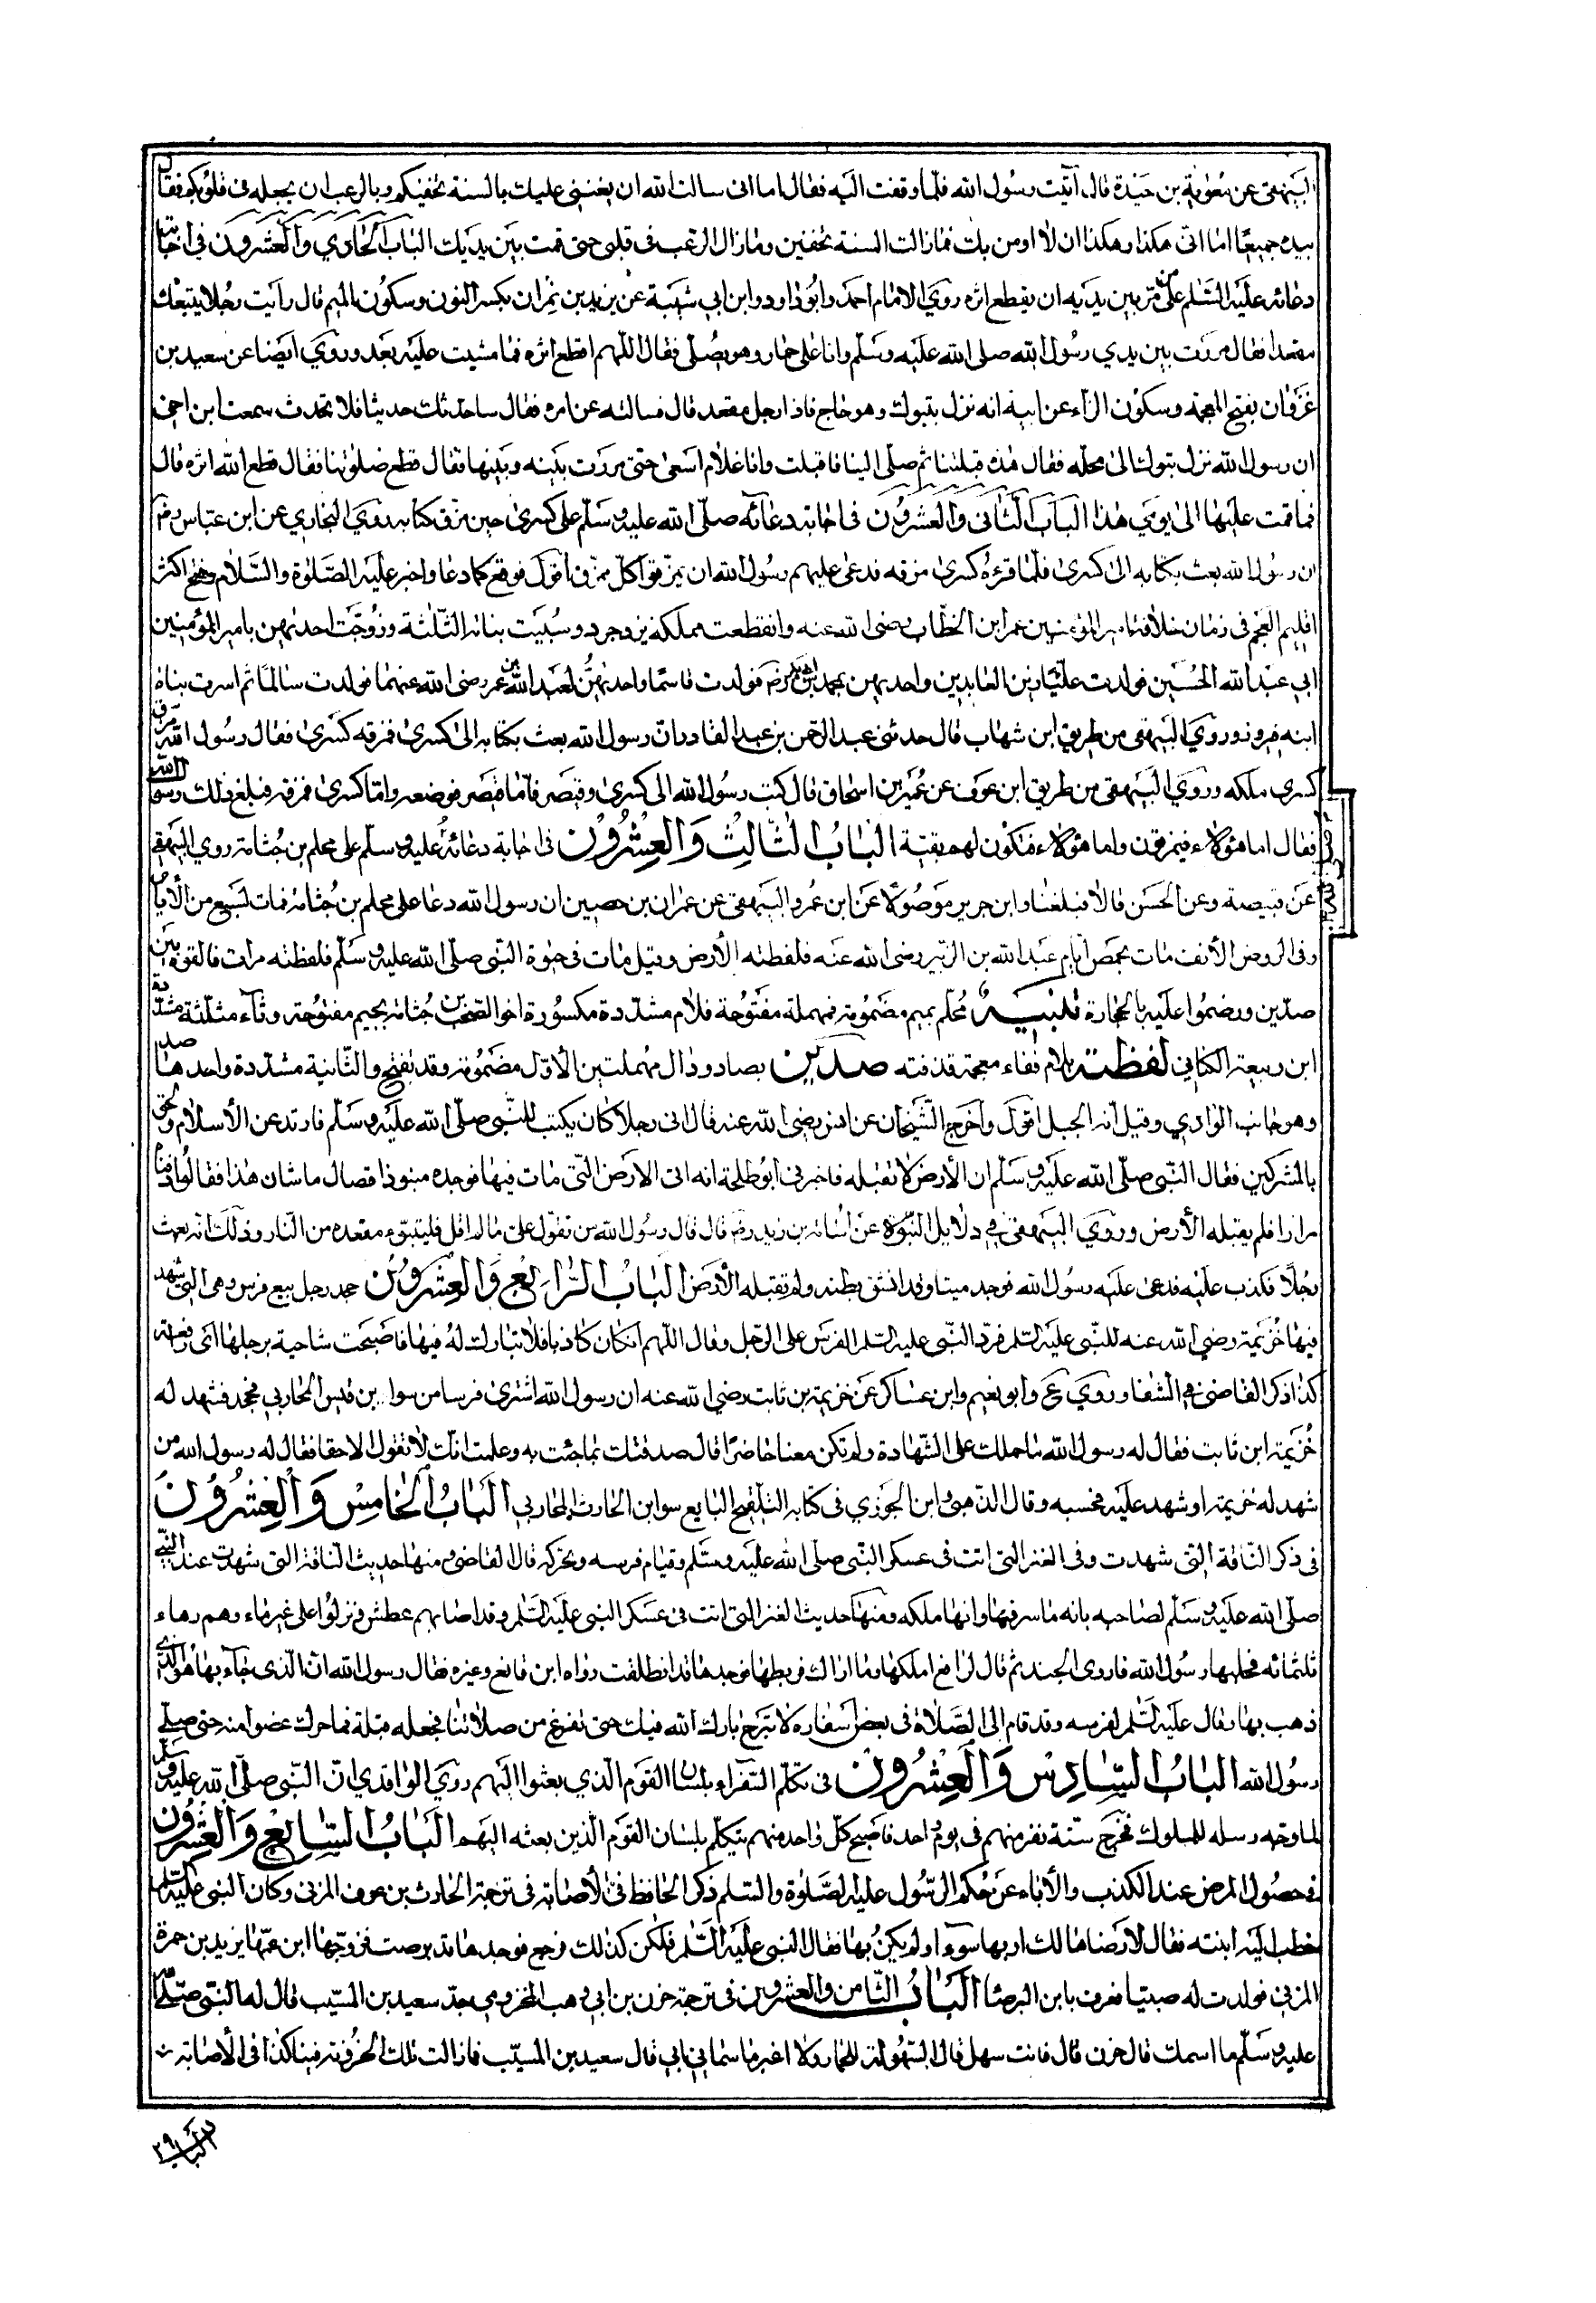 البيهقي عن معوية بن حيدة قال اتيت رسول الله فلما وقفت اليه فقال اما اني سالت الله ان يغنيني عليك بالسنة تحفيكم وبالرعب ان يجعله في قلوبكم فقال
بيده جميعًا اما اني هكذا وهكذا ان لا اومن بك فما زالت السنة تحفين وما زال الرعب في قلبي حتى قمت بين يديك الباب الحادي والعشرون في اجابة
دعائه عليه السلم على من مر بين يديه ان يقطع اثره روي الامام احمد وابو داود وابن ابي شيبة عن يزيد بن نمران بكسر النون وسكون الميم قال رأيت رجلا بتبوك
مقعدا فقال مررت بين يدي رسول الله صلى الله عليه وسلم وانا على حمار وهو يصلى فقال اللهم اقطع اثره فما مشيت عليه بعد وروي ايضا عن سعيد بن
غزوان بفتح المعجمة وسكون الزاء عن ابيه انه نزل بتبوك وهو حاج فاذا رجل مقعد قال فسالته عن امره فقال ساحدثك حديثا فلا تحدث سمعت ابن احمي
ان رسول الله نزل بتبوك الى محله فقال هذه قبلتنا ثم صلى الينا فاقبلت وانا غلام اسعى حتى مررت بينه وبينها فقال قطع صلوتنا فقال قطع الله اثره قال
فما قمت عليها الى يومي هذا الباب الثاني والعشرون في اجابة دعائه صلى الله عليه وسلم على كسرى حين مزق كتابه روي البخاري عن ابن عباس رضه
ان رسول الله بعث بكتابه الى كسرى فلما قرءه كسرى مزقه فدعى عليهم رسول الله ان يمزقوا كل ممزق اقول فوقع كما دعا واخبر عليه الصلوة والسلام وفتح اكثر
اقليم العجم في زمان خلافة امير المؤمنين عمر ابن الخطاب رضي الله عنه وانقطعت مملكة يزدجرد وسبيت بناته الثلثة وزوجت احديهن بامير المؤمنين
ابي عبد الله الحسين فولدت عليا زين العابدين واحديهن بمحمد بن ابي بكر رضه فولدت قاسما واحديهن لعبد الله بن عمر رضى الله عنهما فولدت سالما ثم اسرت بناة
ابنه فيروز وروي البيهقي من طريق ابن شهاب قال حدثني عبد الرحمن بن عبد القادر ان رسول الله بعث بكتابه الى كسرى فمزقه كسرى فقال رسول الله مزق
كسرى ملكه وروي البيهقي من طريق ابن عوف عن عمير بن اسحاق قال كتب رسول الله الى كسرى وقيصر فاما قيصر فوضعه واما كسرى فمزقه فبلغ ذلك رسول الله
فقال اما هؤلاء فيمزقون واما هؤلاء فتكون لهم بقية الباب الثالث والعشرون في اجابة دعائه عليه وسلم على محلم بن جثامة روي البيهقي
عن قبيصة وعن الحسن قالا فبلغنا وابن جرير موصولا عن ابن عمر والبيهقي عن عمران بن حصين ان رسول الله دعا على محلم بن جثامة فمات لسبع من الأيام
وفي الروض الأنف مات بحمص ايام عبد الله بن الزبير رضى الله عنه فلفظته الأرض وقيل مات في حيوة النبي صلى الله عليه وسلم فلفظته مرات فالقوه بين
صدين ورضموا عليه بالحجارة تنبيه محلم بميم مضمومة فمهملة مفتوحة فلام مشددة مكسورة اخو الصعب بن جثامة بجيم مفتوحة وثاء مثلثة مشددة
ابن ربيعة الكناني لفظته بلام ففاء معجمة قذفته صدين بصاد ودال مهملتين الأول مضمومة وقد تفتح والثانية مشددة واحدها صد
وهو جانب الوادي وقيل انه الجبل اقول واخرج الشيخان عن انس رضى الله عنه قال اني رجلا كان يكتب للنبي صلى الله عليه وسلم فارتد عن الأسلام ولحق
بالمشركين فقال النبي صلى الله عليه وسلم ان الأرض لا تقبله فاخبرني ابو طلحة انه اتى الارض التي مات فيها فوجده منبوذا فقال ما شان هذا فقالوا دفناه
مرارا فلم يقبله الأرض وروي البيهقي في دلايل النبوة عن اسامة بن زيد رضه قال قال رسول الله من تقول على ما لم اقل فليتبوء مقعده من النار وذلك انه بعث
رجلا فكذب عليه فدعى عليه رسول الله فوجد ميتا وقد انشق بطنه ولم تقبله الأرض الباب الرابع والعشرون جحد رجل بيع فرس وهي التي شهد
فيها خزيمة رضي الله عنه للنبي عليه السلم فرد النبي عليه السلم الفرس على الرجل وقال اللهم ان كان كاذبا فلا تبارك له فيها فاصبحت شاحية برجلها اى رافعة
كذا ذكر القاضي في الشفا وروي ع وابو نعيم وابن عساكر عن خزيمة بن ثابت رضي الله عنه ان رسول الله اشترى فرسا من سوا بن قيس المحاربي فجحد فشهد له
خزيمة ابن ثابت فقال له رسول الله ما حملك على الشهادة ولم تكن معنا حاضرا قال صدقتك بما جئت به وعلمت انك لا تقول الا حقا فقال له رسول الله من
شهد له خزيمة او شهد عليه فحسبه وقال الذهبي وابن الجوزي في كتابه التلقيح البايع سوا بن الحارث المحاربي الباب الخامس والعشرون
في ذكر الناقة التي شهدت وفي الغنز التي اتت في عسكر النبي صلى الله عليه وسلم وقيام فرسه وتحركه قال القاضي ومنها حديث الناقة التي شهدت عند النبي
صلى الله عليه وسلم لصاحبه بانه ما سرقها وانها ملكه ومنها حديث الغنز التي اتت في عسكر النبي عليه السلم وقد اصابهم عطش ونزلوا على غير ماء وهم زهاء
ثلثمائه فحلبها رسول الله فاروى الجند ثم قال لرافع املكها وما اراك فربطها فوجدها قد انطلقت رواه ابن قانع وغيره فقال رسول الله ان الذي جاء بها هو الذي
ذهب بها وقال عليه السلم لفرسه وقد قام الى الصلاة في بعض اسفاره لا تبرح بارك الله فيك حتى نفرغ من صلاتنا فجعله قبلة فما حرك عضوا منه حتى صلى
رسول الله الباب السادس والعشرون في تكلم السفراء بلسان القوم الذي بعثوا اليهم روي الواقدي ان النبي صلى الله عليه وسلم
لما وجه رسله للملوك فخرج ستة نفر منهم في يوم واحد فاصبح كل واحد منهم يتكلم بلسان القوم الذين بعثه اليهم الباب السابع والعشرون
في حصول المرض عند الكذب والأباء عن حكم الرسول عليه الصلوة والسلم ذكر الحافظ في الأصابة في ترجمة الحارث بن عوف المزني وكان النبي عليه السلم
خطب اليه ابنته فقال لا ارضاها لك ان بها سوءا ولم يكن بها فقال النبي عليه السلم فلتكن كذلك فرجع فوجدها قد برصت فزوجها ابن عمها يزيد بن حمزة
المزني فولدت له صبيا فعرف بابن البرصا الباب الثامن والعشرون في ترجمة حزن بن ابي وهب المخزومي جد سعيد بن المسيب قال له النبي صلى الله
عليه وسلم ما اسمك قال حزن قال فانت سهل قال السهولة للحمار ولا اغير ما سماني ابي قال سعيد بن المسيب فما زالت تلك الحزونة فينا كذا في الأصابة
الباب ٢٩